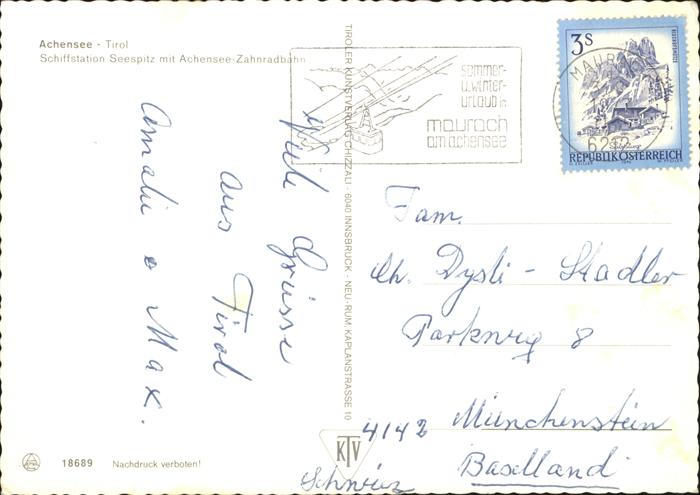 Achensee - Tirol
Schiffstation Seespitz mit Achensee-Zahnradbahn
viele Grüsse
aus Tirol
Amalie e Max.
18689 Nachdruck verboten!
TIROLER KUNSTVERLAG CHIZZALI · 6040 INNSBRUCK - NEU-RUM, KAPLANSTRASSE 10
KTV
sommer-
u.winter-
urlaub in
maurach
am achensee
MAURACH
6212
3S
BISCHOFSMÜTZE
Salzburg
REPUBLIK ÖSTERREICH
Fam.
Ch. Dysli - Stadler
Parkweg 8
4142 Münchenstein
Baselland
Schweiz